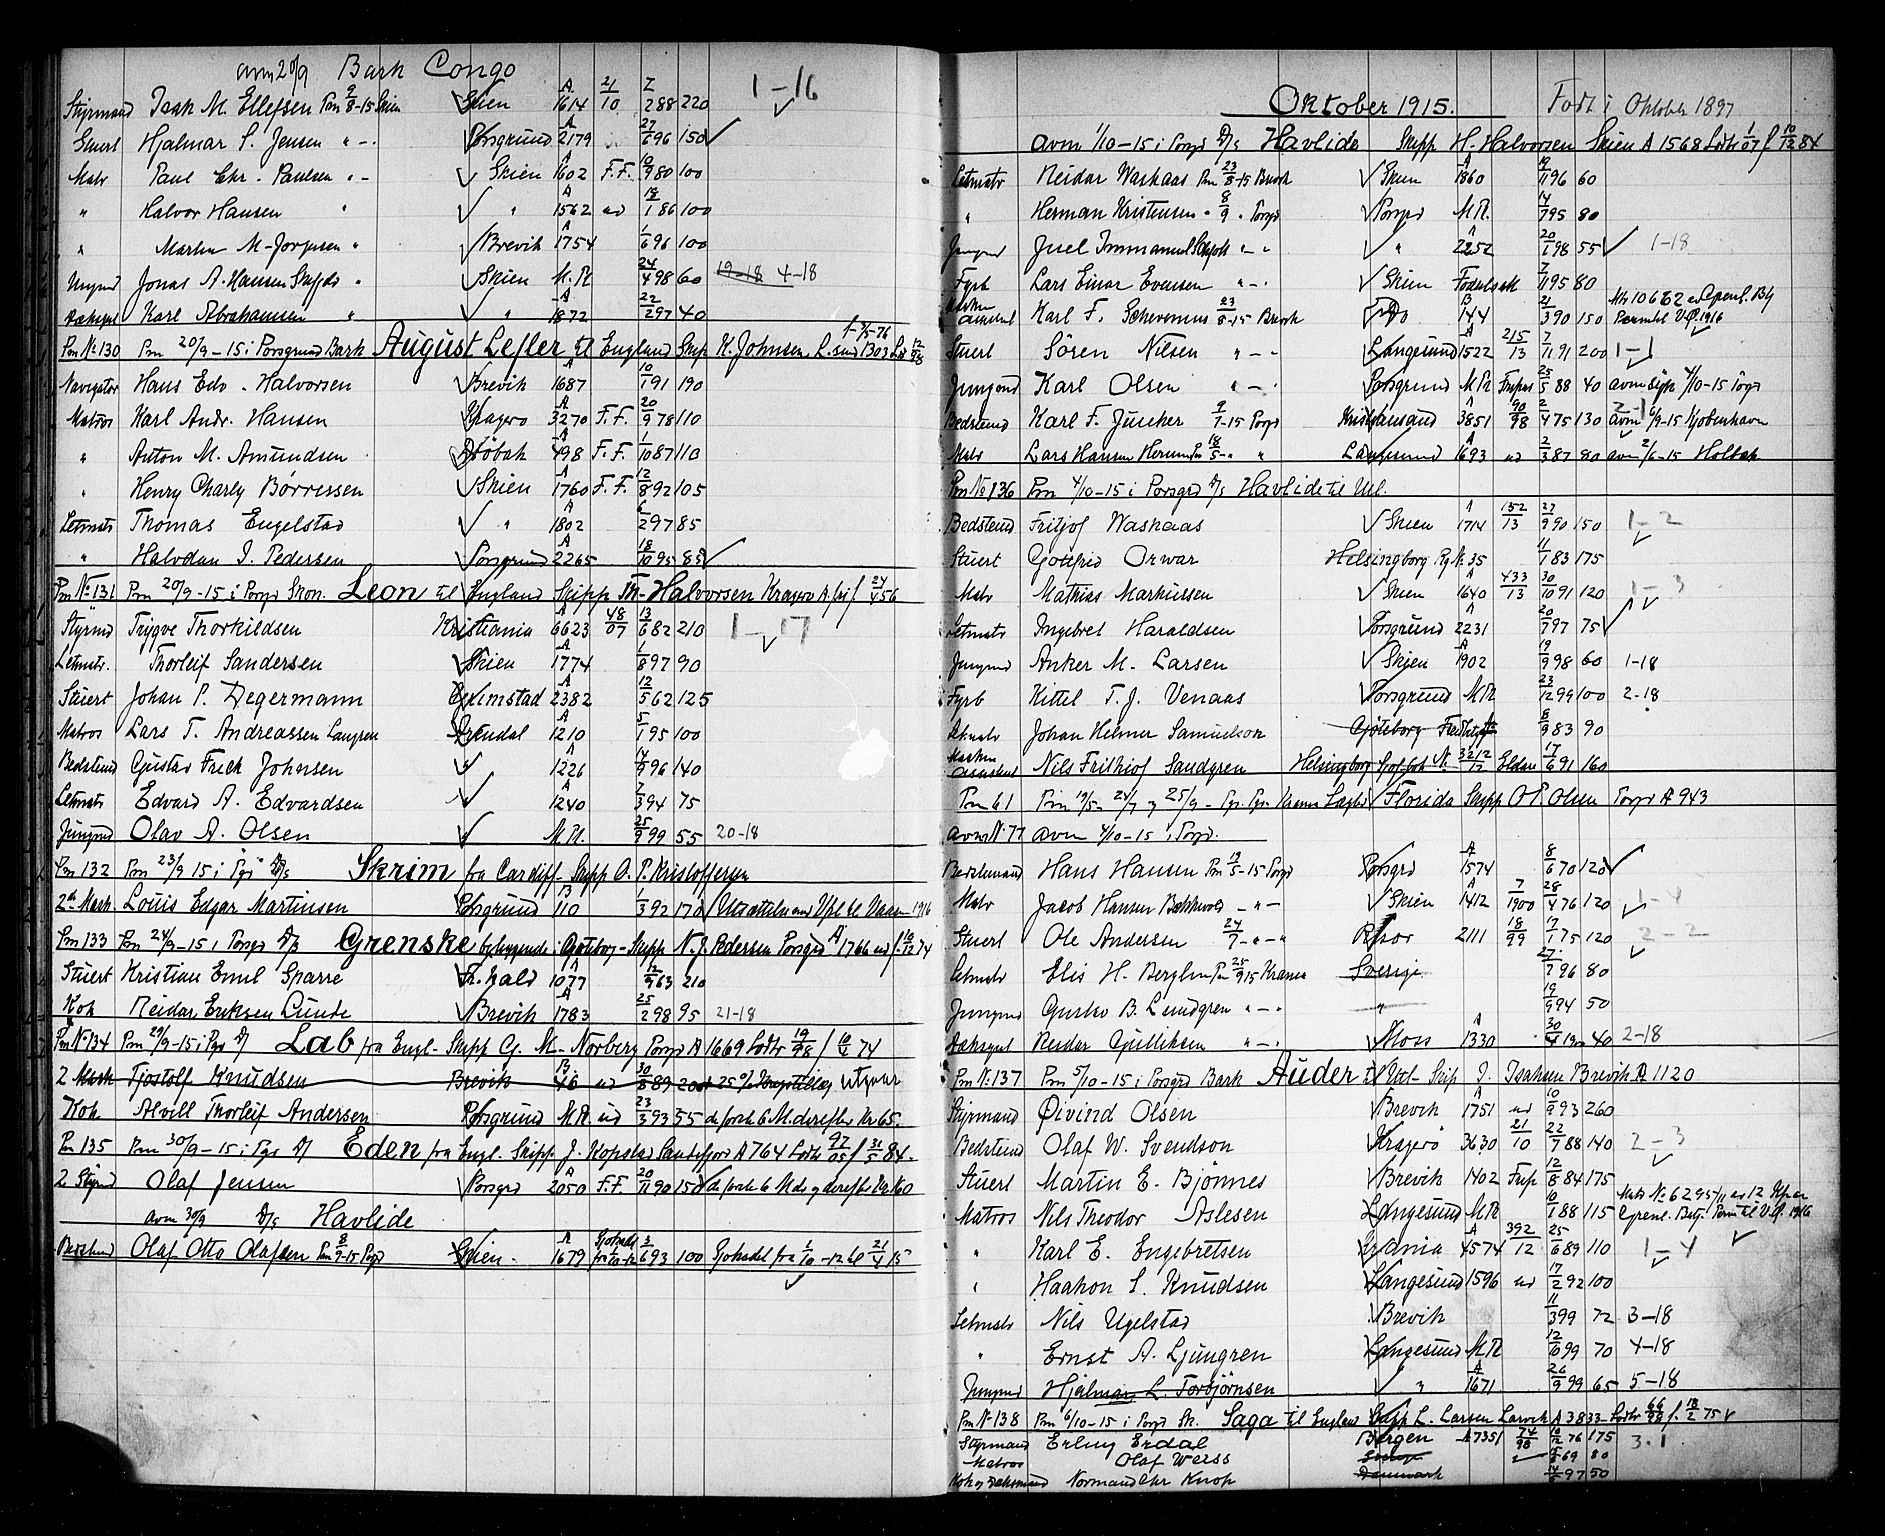 avm 20/9 Bark Congo
Styrmand Isak M. Ellefsen Pm 9/8-15 Skien Skien A 1614 21/10 2/2 88 220 1-16
Stuert Hjalmar S. Jensen " - Porsgrund A 2179 27/6 96 150
Matr Paul Chr. Paulsen " - Skien A 1602 F.F. 10/9 80 100
" Halvor Hansen " " A 1562 ud 18/1 86 100
" Martin M. Jørgensen " Brevik A 1754 1/6 96 100
Ungmd Jonas A. Hansen " Skien M.R. 24/4 98 60 19-18 4-18
Dæksgut Karl Abrahamsen " " A 1872 22/2 97 40
Pm No 130 Pm 20/9-15 i Porsgrund Bark August Lefler til England Skip K. Johnsen L.sund 1303
Navigatør Hans Edv. Halvorsen Brevik A 1687 10/1 91 190
Matros Karl Andr. Hansen Kragerø A 3270 F.F. 20/9 78 110
" Anton M. Amundsen Drøbak A 498 F.F. 1/10 87 110
" Henry Charly Børressen Skien A 1760 F.F. 12/8 92 105
Letmatr Thomas Engelstad " A 1802 2 97 85
" Halvdan I. Pedersen Porsgrund A 2265 18/10 95 85
Pm No 131 Pm 20/9-15 i Porsgd Skon. Leon til England Skipp Th. Halvorsen Kragerø A f. 24/4 56
Styrmd Trygve Thorkildsen Kristiania A 6623 48/07 13/6 82 210 1-17
Letmtr. Thorleif Sandersen Skien A 1774 1/8 97 90
Stuert Johan P. Degermann Grimstad A 2382 12/5 62 125
Matros Lars T. Andreassen Arendal A 1210 5/1 95 100
Bedstemd Gustav Frick Johnsen " A 1226 14/9 96 140
Letmatr Edvard A. Edvardsen " A 1240 2/3 94 75
Jungmd Olav A. Olsen " M.R. 25/9 99 55 20-18
Pm 132 Pm 23/9 15 i Pgr D/s Skrim fra Cardiff Skipp O. P. Kristoffersen
2den Mask. Louis Edgar Martinsen Porsgrund B 110 1/3 92 170 Utsættelse med Vpl til Vaaren 1916
Pm 133 Pm 24/9-15 i Porsgd D/s Grenske Gøteborg Skipp N. J. Pedersen Porsgrd A 1766 ud f. 10/12 74
Stuert Kristian Emil Sparre Fr.hald A 1077 12/9 63 210
Kok Reidar Eriksen Lunde Brevik A 1783 25/2 98 95 21-18
Pm No 134 Pm 29/9-15 i Pgr D/s Lab fra Engl. Skipp G. M. Norberg Porsgrd A 1669 Lodtr 19/98 f 10/4 74
2 Mask Tjostolf Knudsen Brevik B 46 ud 30/8 89 200 25% Krigstillæg utgaar
Kok Alvill Thorleif Andersen Porsgrund M.R. ud 23/3 93 55 de første 6 M. derefter Kr 65.
Pm 135 Pm 30/9-15 i Pgr D/s Eden fra Engl. Skipp J. Kopstad Sandefjord A 764 Lodtr 92/05 f 31/5 84.
2 Styrmd Olaf Jensen Porsgrd A 2050 F.F. 20/11 90 150 de første 6 Mdr og derefter Kr 160
avm 30/9 D/s Havlide
Bedstemd Olaf Otto Olafsen Pm 8/9-15 Pogd Skien A 1679 Godtadt fra 1/10-12 3/6 93 100 Godtadt fra 1/10-12 til 21/4 15
Oktober 1915. Født i Oktober 1897
avm 1/10-15 i Porsgr D/s Havlide Skipp H. Halvorsen Skien A 1568 Lodtr 1/07 f 10/12 84
Letmatr Reidar Waskaas Pm 23/8-15 Brevik Skien A 1860 19/11 96 60
" Herman Kristensen " 8/9 " Porsgd Porsgrd M.R. 14/7 95 80
Jungmd Juel Immanuel " - " " A 2252 20/1 98 55 1-18
Fyrb Lars Einar Evensen " - . Skien Fødselsatt 7/11 95 80
Maskin assistent Karl F. Schevenius 23/8-15 Brevik Do B 144 21/3 90 150
Stuert Søren Nilsen " - - Langesund A 1522 215/13 7/11 91 200 1-1
Jungmd Karl Olsen " - . Porsgrund M.R. 25/5 88 40 avm syk 4/10-15 Pogr
Bedstemd Karl F. Juncker 9/7-15 Porsgd Kristiansand A 3851 90/98 2/4 75 130 2-1 avm 6/9-15 Kjøbenhavn
Matr Lars Hansen 18/5- " Langesund A 1693 ud 2/3 87 80 avm 2/6-15 Holbæk
Pm No 136 Pm 4/10-15 i Porsgrd D/s Havlide til Utl.
Bedstemd Fritjof Waskaas Skien A 1714 152/13 27/9 90 150 1-2
Stuert Gotfrid Orwar Helsingborg Rg No 35 11/1 83 175
Matr Mathias Markussen Skien A 1640 433/13 30/10 91 120 1-3
Letmatr Ingebret Haraldsen Porsgrund A 2231 20/7 97 75
Jungmd Anker M. Larsen Skien A 1902 19/9 98 60 1-18
Fyrb Kittel T. J. Venaas Porsgrund M.R. 23/12 99 100 2-18
Johan Helmer Samuelson Gøteborg 8/9 83 90
Maskin assistent Nils Frithiof Sandgren Helsingborg No 3212/12 17/6 91 160
Pm 61 Pm 19/5- 24/7 og 25/9 - Florida Skipp O. P. Olsen Porsgr A 943
avm No 77 avm 4/10-15 i Porgr.
Bedstemand Hans Hansen Pm 19/5-15 Porsgd Porsgrd A 1574 8/6 70 120
Matr Jacob Hansen - " - Skien A 1412 7/1900 28/4 76 120 1-4
Stuert Ole Andersen 24/7 - " - " Risør 2111 18/99 17/1 75 120 2-2
Letmatr Elis H. Berglin Pm 25/9 15 Sverige 27/7 96 80
Jungmd Gustav B. Lundgren " - . " 19/9 94 50
Dæksgut Reidar Gulliksen " - . Moss A 1330 30/4 1900 40 2-18
Pm No 137 Pm 5/10-15 i Porsgrd Bark Auder til Utl- Skip I. Isaksen Brevik A 1120
Styrmand Øivind Olsen Brevik A 1751 ud 10/9 93 260
Bedstemd Olaf W. Svendson Kragerø 3630 21/10 22/7 88 140 2-3
Stuert Martin E. Bjønnes Brevik 1402 Frip 12/8 84 175
Matros Nils Theodor Aslesen Langesund M.R. 10/1 88 115
" Karl E. Engebretsen Kr.ania A 4574 392/12 25/6 89 110 1-4
" Haakon S. Knudsen Langesund 1596 ud 17/2 92 100
Letmatr Nils Ugelstad Brevik 11/3 99 72 3-18
" Ernst A. Ljungren Langesund M.R. 12/10 99 70 4-18
Jungmd Hjalmar L. Torbjørnsen " A 1671 26/9 99 65 5-18
Pm No 138 Pm 6/10-15 i Porsgr Sk. Saga til England Skipp L. Larsen Larvik A 3833 Lodtr 66/99 f. 18/2 75
Styrmand Erling Erdal Bergen A 7351 74/98 10/12 76 175 3.1
Matros Olaf Weiss Sverige 69 80
Kok og Dæksmand Normand Chr Knop Danmark 97 50